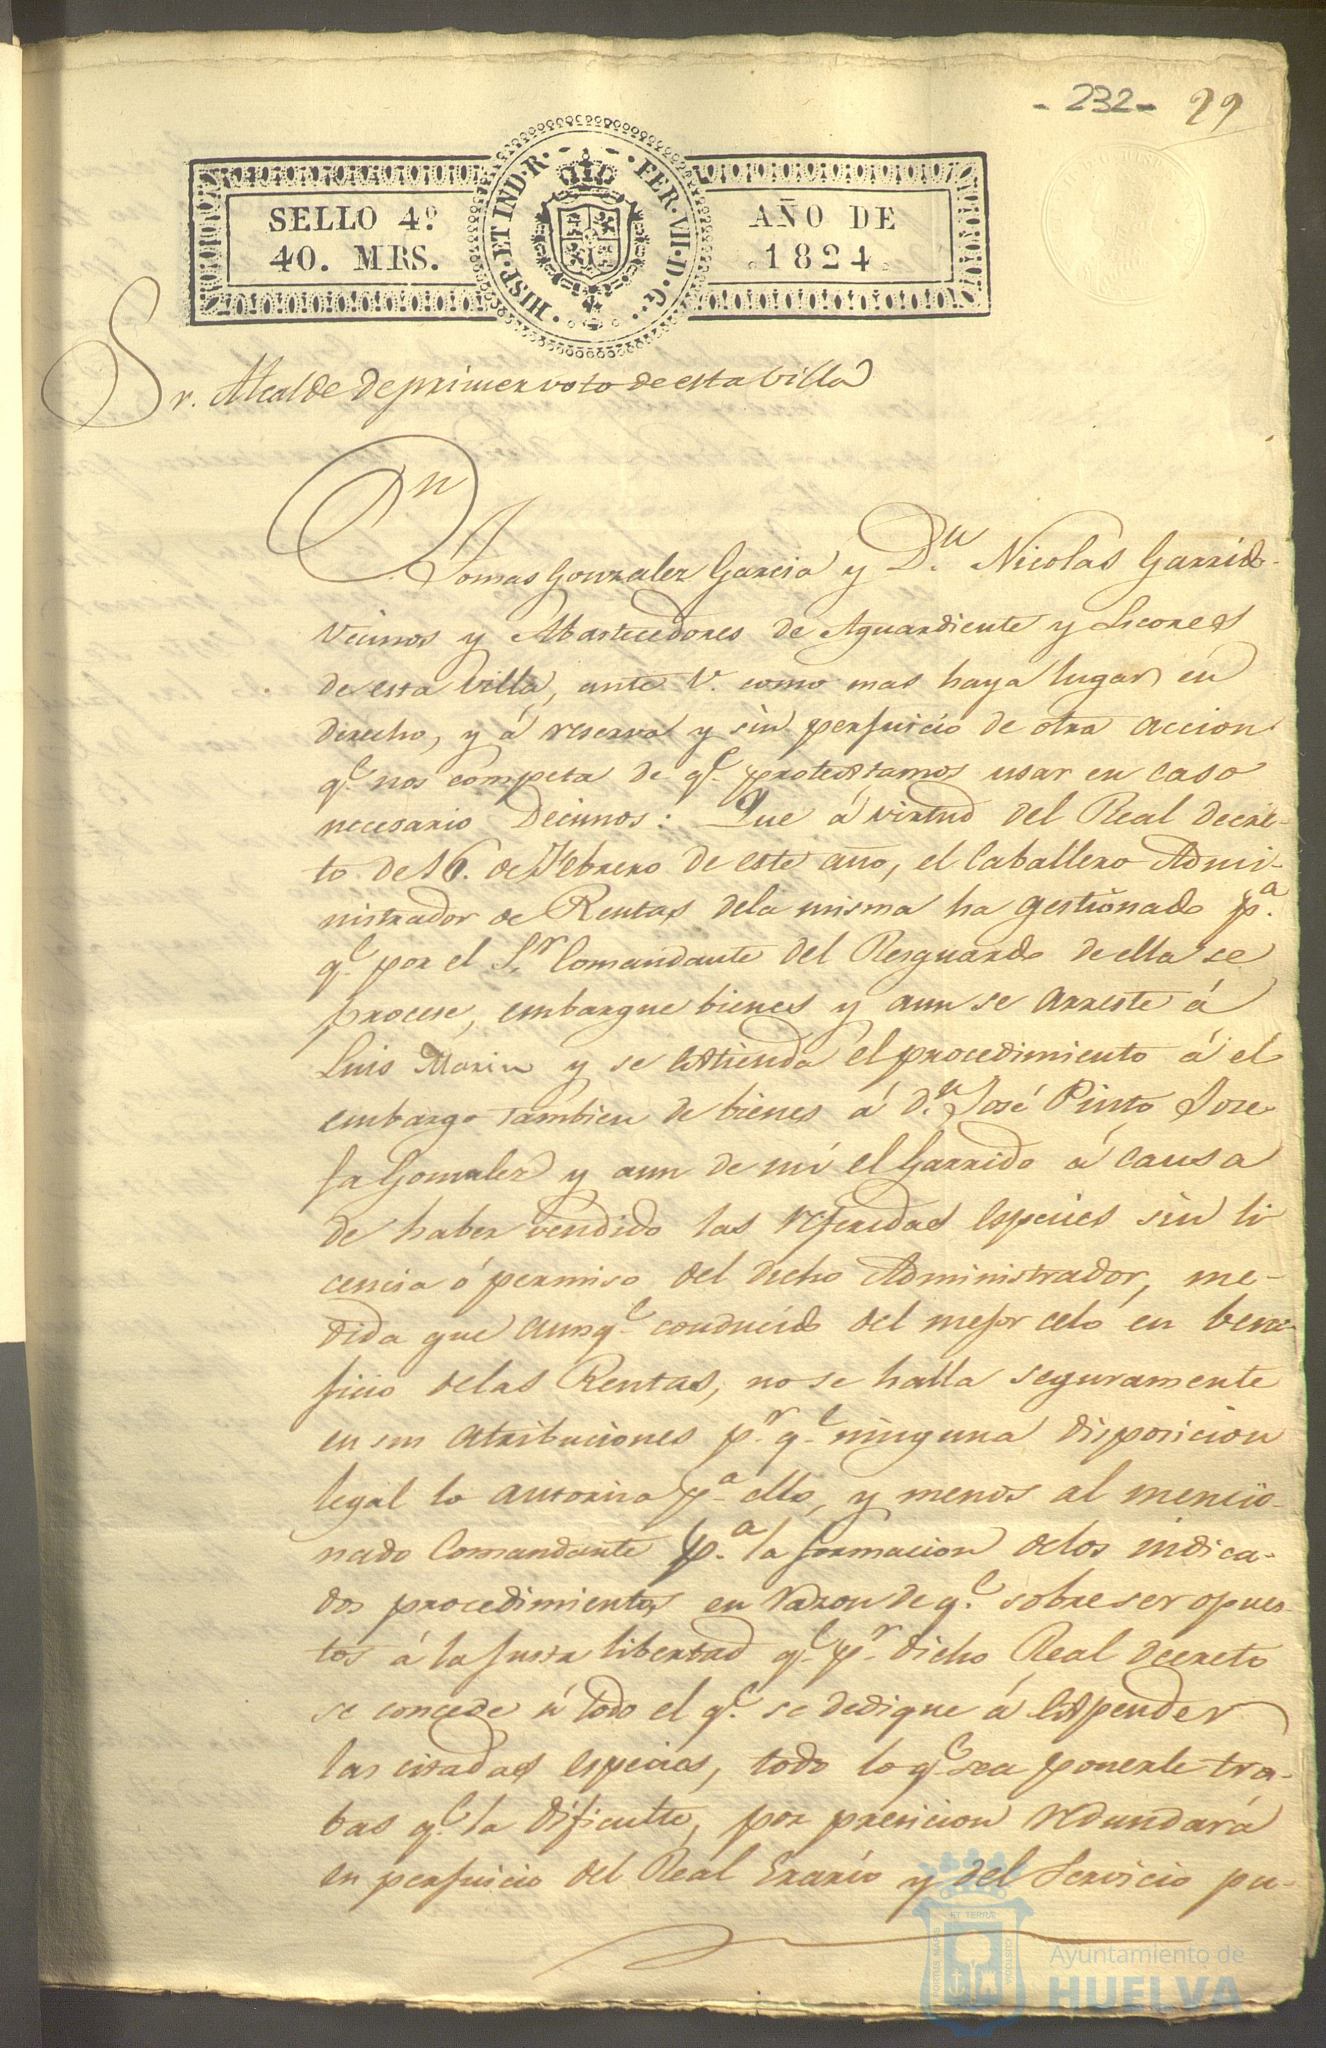 - 232 - 99
SELLO 4º
40. MRS.
HISP. ET IND. R. FER. VII. D. G.
AÑO DE
1824.
Sr. Alcalde de primer voto de esta Villa
Dn. Tomas Gonzalez Garcia y Dn. Nicolas Garrido
Vecinos y Abastecedores de Aguardiente y Licores
de esta Villa, ante V. como mas haya lugar en
derecho, y á reserva y sin perjuicio de otra accion
qe. nos competa de qe. protestamos usar en caso
necesario Decimos: Que á virtud del Real decre-
to de 16. de Febrero de este año, el Caballero Admi-
nistrador de Rentas dela misma ha gestionado pa.
qe. por el Sr. Comandante del Resguardo de ella se
procese, embargue bienes y aun se arreste á
Luis Marin y se estienda el procedimiento á el
embargo tambien de bienes á dn. José Pinto, Jose-
fa Gonzalez y aun de mí el Garrido á causa
de haber vendido las referidas especies sin li
cencia ó permiso del dicho Administrador, me-
dida que aunqe. conducido del mejor celo en bene-
ficio delas Rentas, no se halla seguramente
en sus atribuciones pr. qe. ninguna disposicion
legal lo autoriza pa. ello, y menos al mencio-
nado Comandante pa. la formacion delos indica-
dos procedimientos en razon de qe. sobre ser opues-
tos á la justa libertad qe. pr. dicho Real decreto
se concede á todo el qe. se dedique á espender
las citadas especies, todo lo qe. sea ponerle tra-
bas qe. la dificulte, por precicion redundará
en perjuicio del Real Erario y del Servicio pu-
PORTUS MARIS ET TERRAE CUSTODIA
Ayuntamiento de
HUELVA